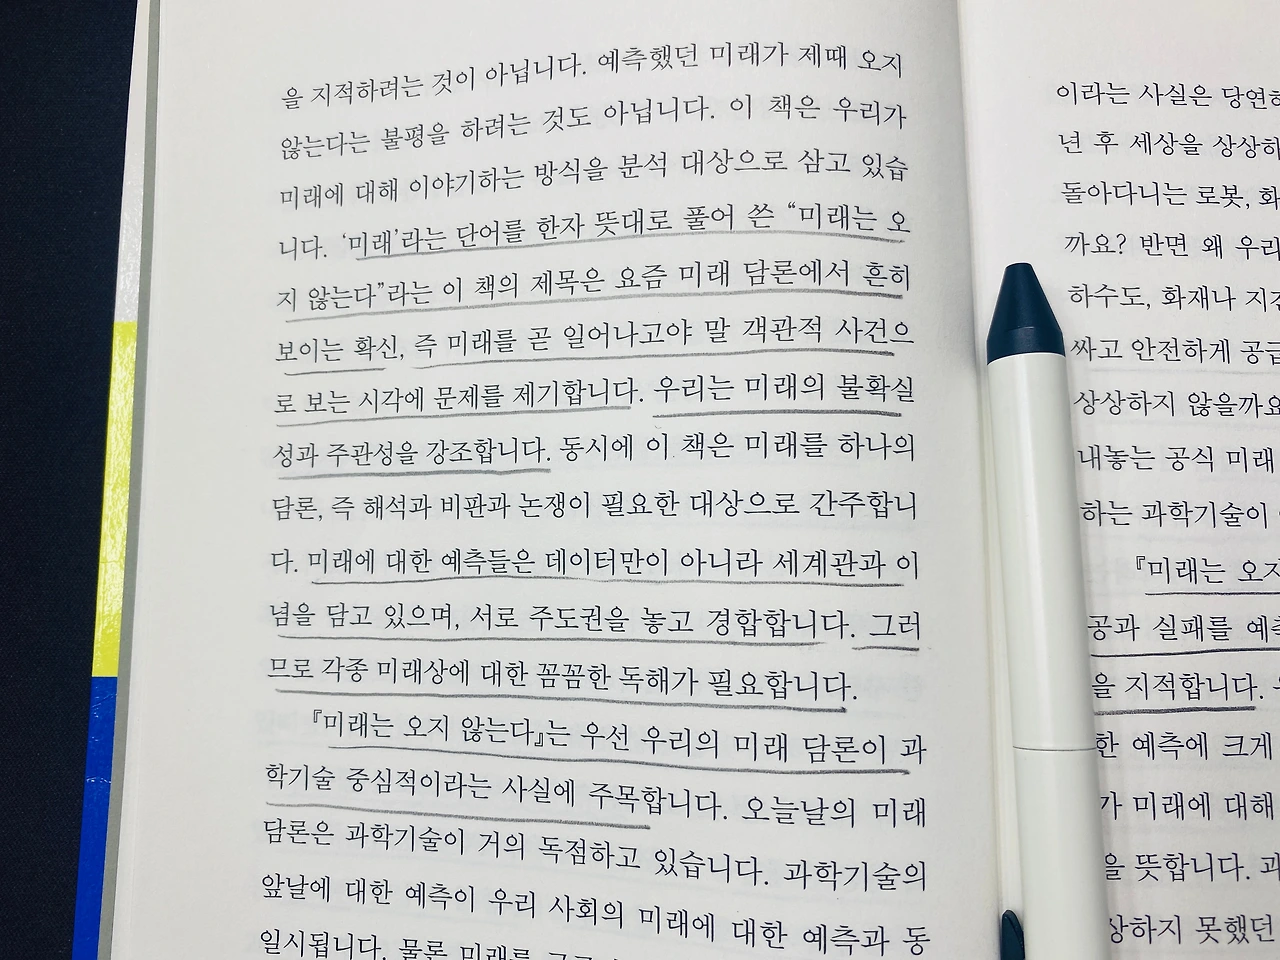 을 지적하려는 것이 아닙니다. 예측했던 미래가 제때 오지
않는다는 불평을 하려는 것도 아닙니다. 이 책은 우리가
미래에 대해 이야기하는 방식을 분석 대상으로 삼고 있습
니다. ‘미래’라는 단어를 한자 뜻대로 풀어 쓴 “미래는 오
지 않는다”라는 이 책의 제목은 요즘 미래 담론에서 흔히
보이는 확신, 즉 미래를 곧 일어나고야 말 객관적 사건으
로 보는 시각에 문제를 제기합니다. 우리는 미래의 불확실
성과 주관성을 강조합니다. 동시에 이 책은 미래를 하나의
담론, 즉 해석과 비판과 논쟁이 필요한 대상으로 간주합니
다. 미래에 대한 예측들은 데이터만이 아니라 세계관과 이
념을 담고 있으며, 서로 주도권을 놓고 경합합니다. 그러
므로 각종 미래상에 대한 꼼꼼한 독해가 필요합니다.
『미래는 오지 않는다』는 우선 우리의 미래 담론이 과
학기술 중심적이라는 사실에 주목합니다. 오늘날의 미래
담론은 과학기술이 거의 독점하고 있습니다. 과학기술의
앞날에 대한 예측이 우리 사회의 미래에 대한 예측과 동
일시됩니다. 물론 미래를
이라는 사실은 당연히
년 후 세상을 상상하
돌아다니는 로봇, 화
까요? 반면 왜 우리
하수도, 화재나 지진
싸고 안전하게 공급
상상하지 않을까요
내놓는 공식 미래
하는 과학기술이
『미래는 오지
공과 실패를 예측
을 지적합니다.
한 예측에 크게
가 미래에 대해
을 뜻합니다. 과
상하지 못했던